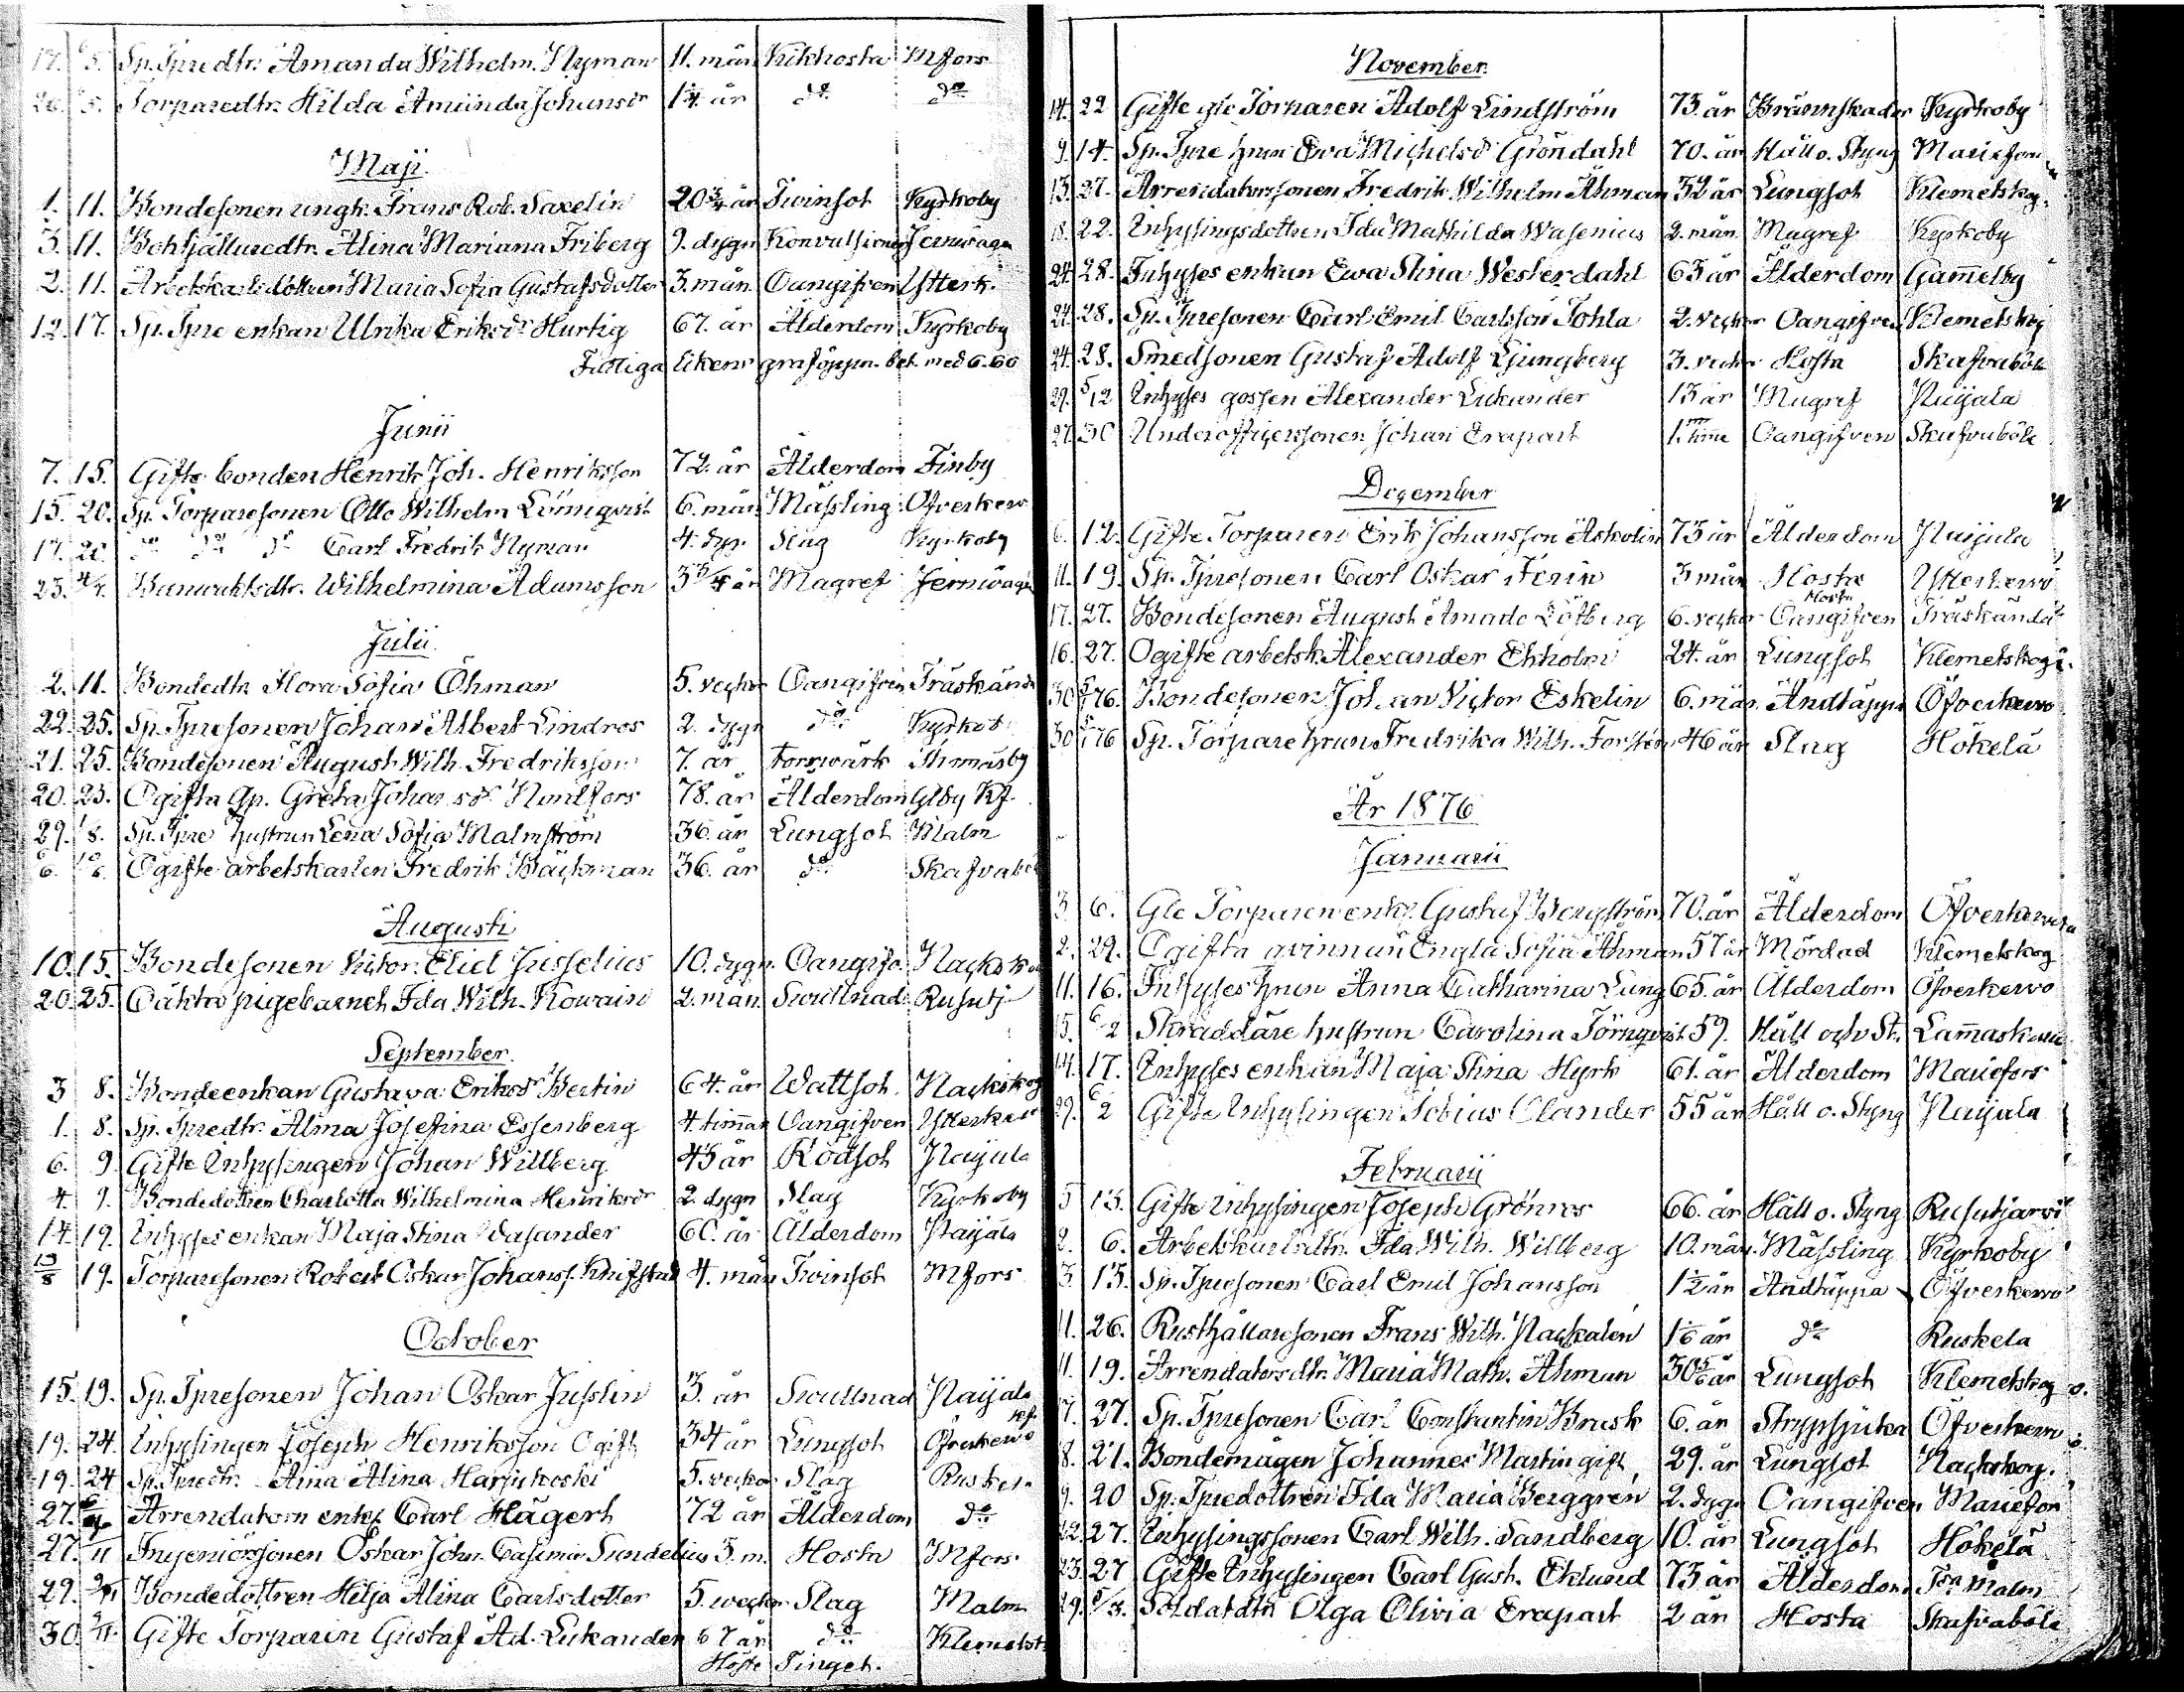 17. 6/5. Sp. Tpredtr. Amanda Wilhelm. Nyman 11. mån Kikhosta Mfors
26. /5. Torparedtr. Hilda Amanda Johansdr 1 1/4. år do do
Maji.
1. 11. Bondesonen ungk. Frans Rob. Saxelin 20 3/4 år Twinsot Kyrkoby
3. 11. Alina Mariana Friberg 9. dygn Konvulsioner Jernwägen
2. 11. Arbetskarlsdottren Maria Sofia Gustafsdotter 3. mån. Oangifven Ytterk.
12. 17. Sp. Tpre enkan Ulrika Eriksdr Hurtig 67. år Ålderdom Kyrkoby
Fattiga likens graföppn. bet. med 6.60
Junii
7. 15. Gifte bonden Henrik Joh. Henriksson 72. år Ålderdom Finby
15. 20. Sp. Torparesonen Otto Wilhelm Lönnqvist 6. mån Mässling Öfverkerv
17. 20. do do do Carl Fredrik Nyman 4. dyn Slag Kyrkoby
23. 4/7. Banwaktsdtr. Wilhelmina Adamsson 3 3/4 år Magref Jernwäg
Julii.
2. 11. Bondedtr. Flora Sofia Öhman 5. veckor Oangifven Träskända
22. 25. Sp. Tpresonen Johan Albert Lindros 2. dygn do Kyrkob
21. 25. Bondesonen August Wilh. Fredriksson 7. år torrwärk Thomasby
20. 25. Ogifta Qp. Greta Johansdr Nordfors 78. år Ålderdom Glby Kf.
29. 1/8. Sp. Tpre hustrun Lena Sofia Malmström 36. år Lungsot Malm
6. Ogifte arbetskarlen Fredrik Bäckman 36. år do Skafvaböl
Augusti
10. 15. Bondesonen Victor Elid Jusselius 10. dygn. Oangifv. Nackskog
20. 25. Oäkta pigebarnet Ida Wilh. Kowain 2. mån. Swullnad Rusutj
September.
3 8. Bondeenkan Gustava Eriksdr Bertin 64. år Wattsot. Nackskog
1. 8. Sp. Tpredtr. Alma Josefina Essenberg 4. timmar Oangifven Ytterkerv
6. 9. Gifte Inhysingen Johan Willberg 45 år Rödsot Naijala
4. 9. Bondedottren Charlotta Wilhelmina Henriksdr 2. dygn Slag Kyrkoby
14. 19. Inhyses enkan Maja Stina Vasander 60. år Ålderdom Naijala
13/8 19. Torparesonen Robert Oskar Johanss. Knifstad 4. mån Twinsot Mfors
October
15. 19. Sp. Tpresonen Johan Oskar Jusslin 3. år Swullnad Naijala
19. 24. Inhysingen Joseph Henriksson Ogift 34 år Lungsot Öfverkervo
19. 24 Sp. Tpredtr. Aina Alina Harjukoski 5. veckor Slag Ruskela
27. Arrendatorn enkl. Carl Hägert 72 år Ålderdom do
27. /11 Ingeniörssonen Oskar John Casimir Sundelius 3. m. Hosta Mfors
29. 2/11 Bondedottren Hilja Alina Carlsdotter 5. weckor Slag Malm
30. 2/11. Gifte Torparen Gustaf Ad. Lukander 67 år do Klemetsk
Höste Tinget.
November.
14. 22 Gifte gle Torparen Adolf Lindström 73. år Brännskador Kyrkoby
9. 14. Sp. Tpre hrun Ewa Michelsdr Gröndahl 70. år Håll o. Styng Mariefors
13. 27. Arrendatorssonen Fredrik Wilhelm Åhman 32 år Lungsot Klemetskog.
18. 22. Inhysingsdottren Ida Mathilda Wasenius 2. mån Magref Kyrkoby
24. 28. Inhyses enkan Ewa Stina Westerdahl 63 år Ålderdom Gammelby
24. 28. Sp. Tpresonen Carl Emil Carlsson Tohla 2. veckor Oangifven Klemetskog
24. 28. Smedsonen Gustaf Adolf Ljungberg 3. veckor Hosta Skafvaböle
29. 5/12 Inhyses gossen Alexander Lukander 13 år Magref Naijala
27. 30 Underofficerssonen Johan Erapart 1. timme Oangifven Skafvaböle
December
6. 12. Gifte Torparen Erik Johansson Askolin 73 år Ålderdom Naijala
11. 19. Sp. Tpresonen Carl Oskar Fenin 3 mån Hosta Ytterkervo
17. 27. Bondesonen August Amado Löfberg 6. veckor Oangifven Hosta Träskända
16. 27. Ogifte arbetsk. Alexander Ekholm 24. år Lungsot Klemetskog
30 76. Bondesonen Johan Victor Eskelin 6. mån. Andtäppa Öfverkervo
30 76 Sp. Torpare hrun Fredrika Wilh. Forstén 46 år Slag Hökelä
År 1876
Januarii
3. 6. Gle Torparen enkl. Gustaf Bergström 70. år Ålderdom Öfverkervo
2. 29. Ogifta qvinnan Engla Sofia Åhman 57 år Mördad Klemetskog
11. 16. Inhyses hrun Anna Catharina Lung 65. år Ålderdom Öfverkervo
15. 6/2 Skräddare hustrun Carolina Törnqvist 59. Håll och St. Lammaskulla
14. 17. Inhyses enkan Maja Stina Hyrk 61. år Ålderdom Mariefors
29. 6/2 Gifte Inhysingen Tobias Olander 55 år Håll o. Styng Naijala
Februarii
5 13. Gifte Inhysingen Joseph Grönros 66. år Håll o. Styng Rusutjärvi
2. 6. Arbetskarlsdtr. Ida Wilh. Willberg 10. mån. Mässling Kyrkoby
3. 13. Sp. Tpresonen Carl Emil Johansson 1 1/2 år Andtäppa Öfverkervo
11. 26. Rusthållaresonen Frans Wilh. Nackalén 1 1/6 år do Ruskela
11. 19. Arrendatorsdtr. Maria Math. Åhman 30 5/6 år Lungsot Klemetskog
17. 27. Sp. Tpresonen Carl Constantin Brusk 6. år Strypsjuka Öfverkervo
18. 21. Bondemågen Johannes Martin gift 29. år Lungsot Nackskog.
19. 20 Sp. Tpredottren Ida Maria Berggren 2. dygn Oangifven Mariefors
22. 27. Inhysingssonen Carl Wilh. Sandberg 10. år Lungsot Hökelä
23. 27 Gifte Inhysingen Carl Gust. Eklund 73 år Ålderdom Malm
29. 5/3. Soldatdtr Olga Olivia Erapart 2 år Hosta Skafvaböle